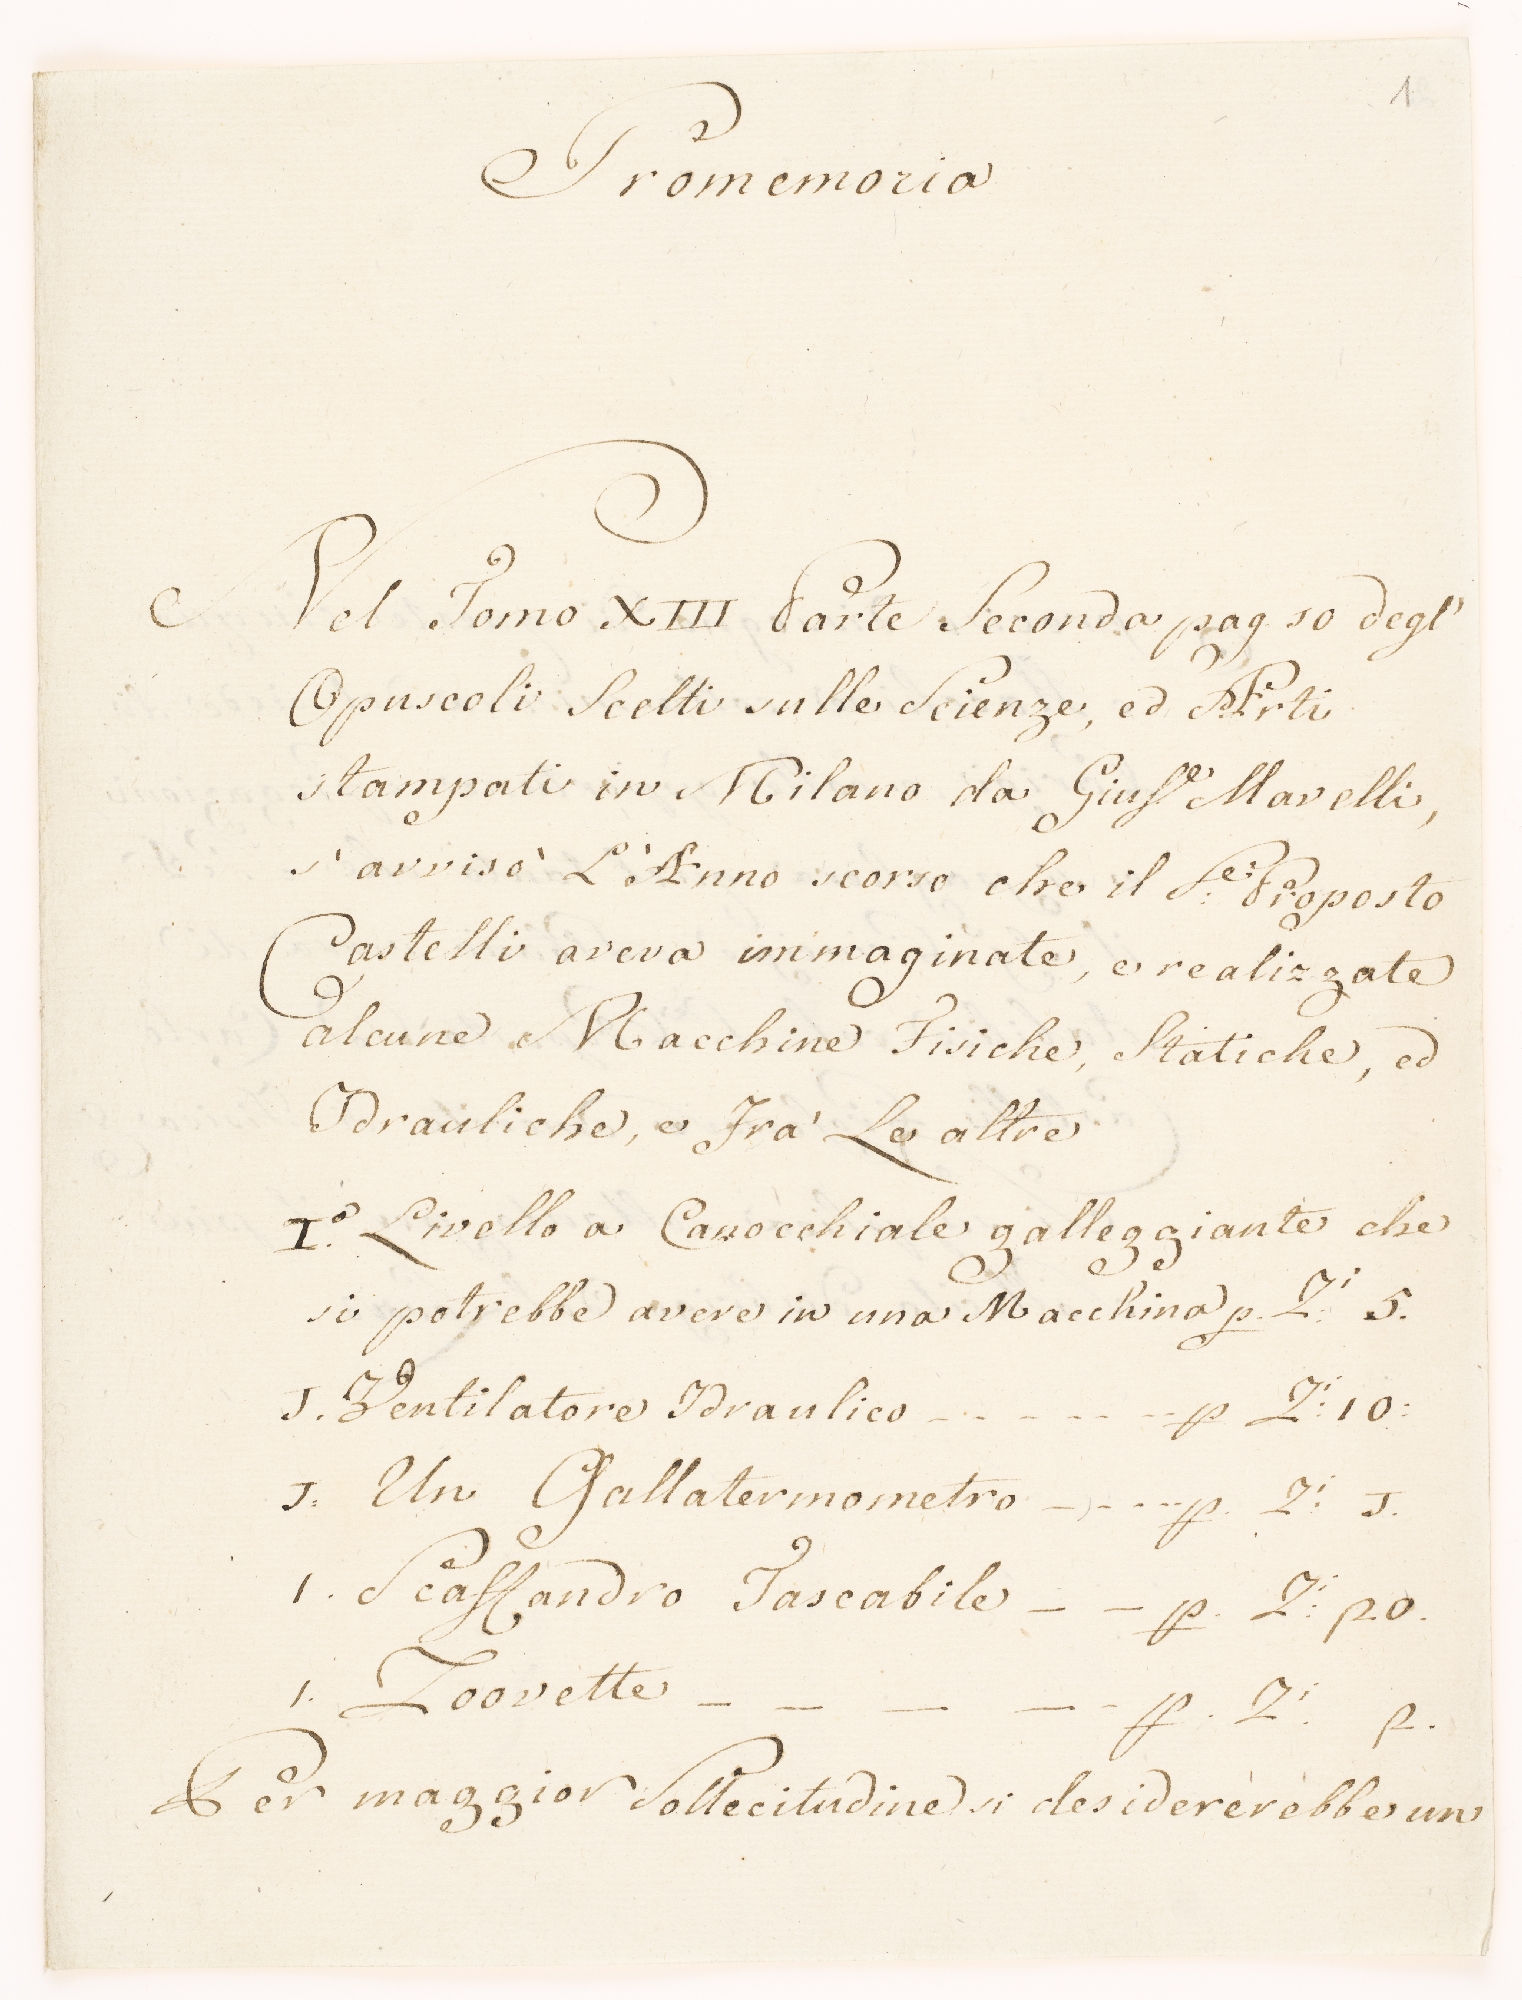 1
Promemoria
Nel Tomo XIII Parte Seconda pag 50 degl'
Opuscoli Scelti sulle Scienze, ed Arti
stampati in Milano da Giuse Marelli,
s'avvisò L'Anno scorso che il Ser: Proposto
Castelli aveva immaginate, e realizzate
alcune Macchine Fisiche, Statiche, ed
Idrauliche, e Frà Le altre
I.o Livello a Canocchiale galleggiante che
si potrebbe avere in una Macchina p. Z:i 5.
I. Ventilatore Idraulico - - - - - - p Z:i 10:
I: Un Gallatermometro - - - - p. Z:i I.
1. Scaffandro Tascabile - - p. Z:i 20.
1. Zoovette - - - - - p. Z:i 2.
Per maggior Sollecitudine si desidererebbe un